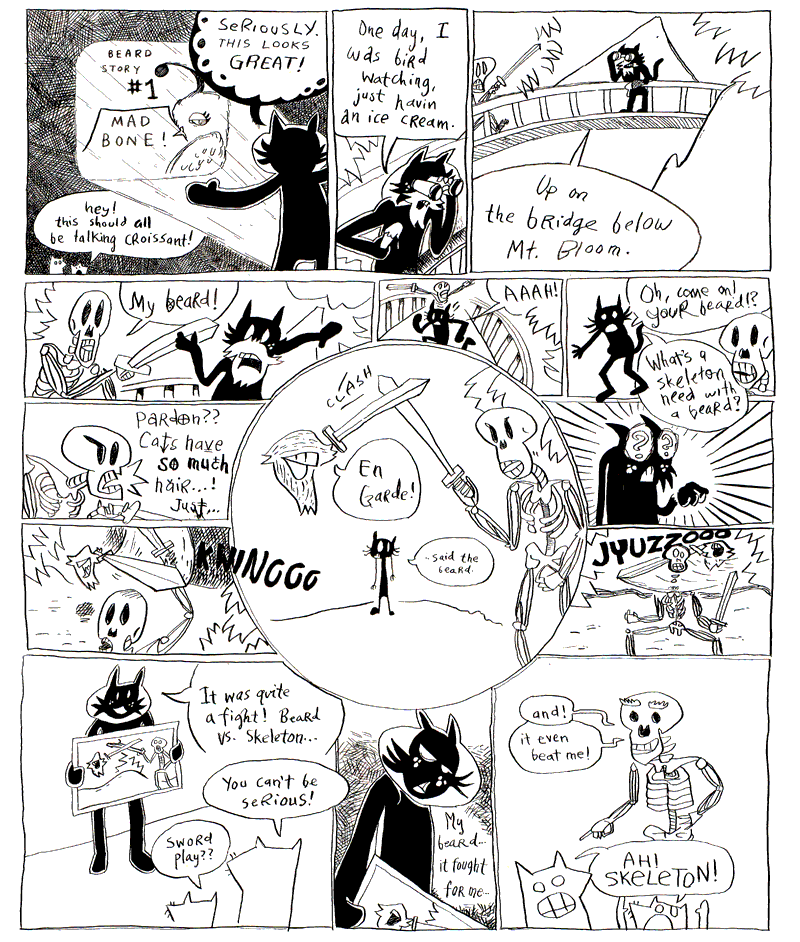 SeRiOUSLY.
THIS LOOKS
GREAT!
BEARD
STORY
#1
MAD
BONE!
hey!
this should all
be talking CRoissant!
One day, I
was biRd
watching,
just havin
an ice cReam.
Up on
the bRidge below
Mt. Bloom.
My beard!
AAAH!
Oh, come on!
youR beaRd!?
What's a
skeleton
need with
a beaRd?
PARdon??
Cats have
so much
hair...!
Just...
CLASH
En
Garde!
..said the
beaRd.
KNINGGG
JYUZZOOO
It was quite
a fight! BeaRd
vs. Skeleton...
You can't be
seRious!
SwoRd
play??
My
beaRd...
it fought
foR me...
and!
it even
beat me!
AH!
SKELETON!